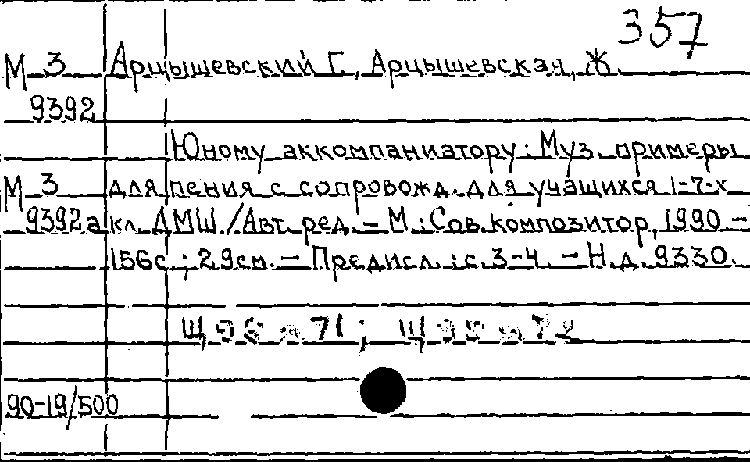 357
М 3 Арцышевский Г., Арцышевская, Ж.
9392
Юному аккомпаниатору: Муз. примеры
М 3 для пения с сопровожд. для учащихся 1-7-х
9392а кл. ДМШ./Авт. ред. – М.: Сов. композитор, 1990. –
156с.; 29см. – Предисл.: с. 3-4. – Н.д. 9330.
71; 72
90-19/500